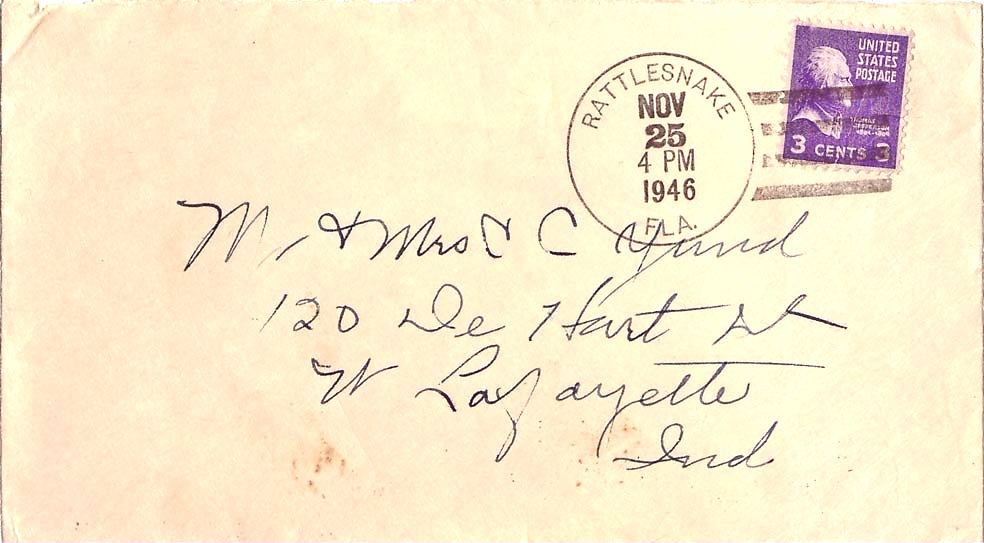 UNITED
STATES
POSTAGE
THOMAS
JEFFERSON
3 CENTS 3
RATTLESNAKE
NOV
25
4 PM
1946
FLA.
Mr & Mrs C C Yund
120 De Hart St
W Lafayette
Ind